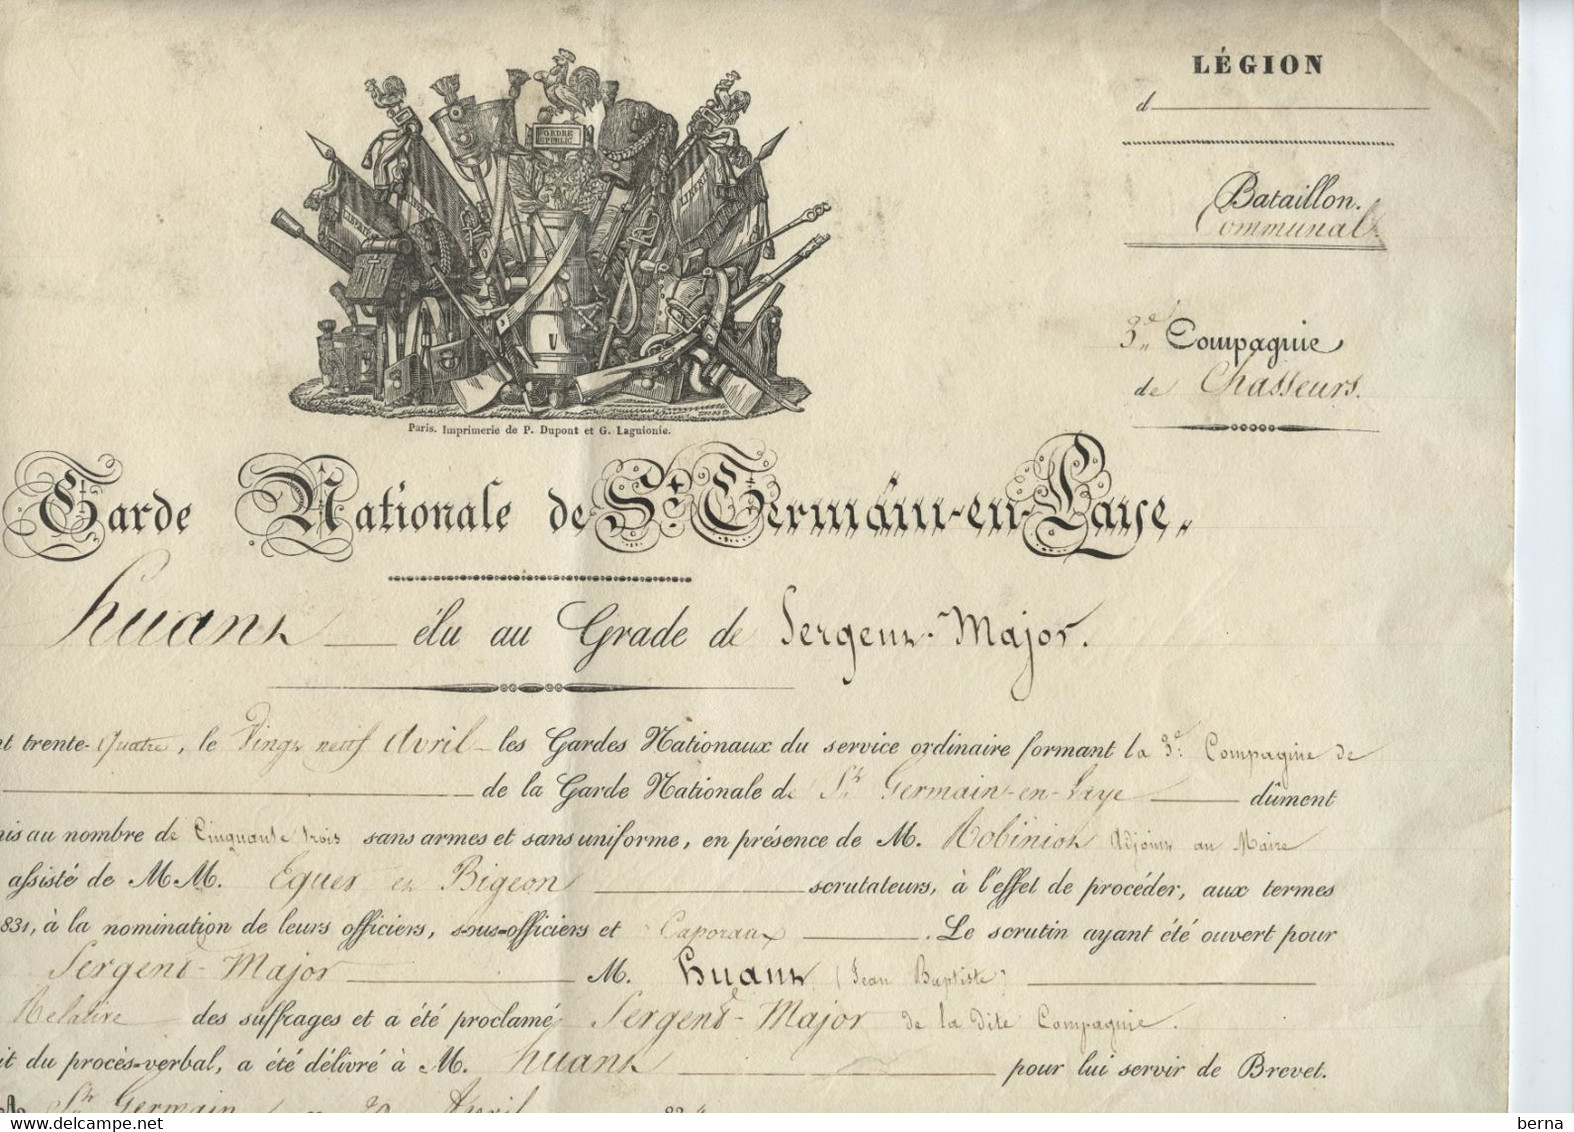 LÉGION
d
Bataillon.
Communal.
ORDRE
PUBLIC
LIBERTÉ
3e Compagnie
de Chasseurs.
Paris. Imprimerie de P. Dupont et G. Laguionie.
Garde Nationale de St Germain-en-Laye.
huant élu au Grade de Sergent-Major.
nt trente-quatre, le Vingt neuf Avril les Gardes Nationaux du service ordinaire formant la 3e Compagnie de
de la Garde Nationale de St Germain-en-Laye dûment
nis au nombre de Cinquante trois sans armes et sans uniforme, en présence de M. Robiniot Adjoint au Maire
assisté de MM. Eguer et Bigeon scrutateurs, à l'effet de procéder, aux termes
831, à la nomination de leurs officiers, sous-officiers et Caporaux. Le scrutin ayant été ouvert pour
Sergent-Major M. huant (Jean Baptiste)
Relative des suffrages et a été proclamé Sergent-Major de la dite Compagnie.
it du procès-verbal, a été délivré à M. huant pour lui servir de Brevet.
A St Germain Avril 83
berna